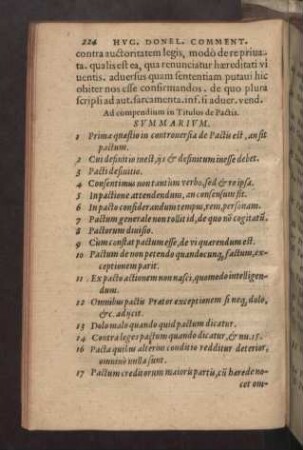 224 HVG. DONEL. COMMENT.
contra auctoritatem legis, modò de re priua-
ta. qualis est ea, qua renunciatur hæreditati vi
uentis. aduersus quam sententiam putaui hîc
obiter nos esse confirmandos. de quo plura
scripsi ad aut. sacramenta. inf. si aduer. vend.
Ad compendium in Titulos de Pactis.
SVMMARIVM.
1 Primæ quæstio in controuersia de Pactis est, an sit
pactum.
2 Cui definitio inest, ijs & definitum inesse debet.
3 Pacti definitio.
4 Consentimus non tantùm verbo, sed & re ipsa.
5 In pactione attendendum, an consensum sit.
6 In pacto considerandum tempus, rem, personam.
7 Pactum generale non tollit id, de quo nõ cogitatũ.
8 Pactorum diuisio.
9 Cùm constat pactum esse, de vi quærendum est.
10 Pactum de non petendo quandocunq, factum, ex-
ceptionem parit.
11 Ex pacto actionem non nasci, quomodo intelligen-
dum.
12 Omnibus pactis Prætor exceptionem si neq, dolo,
&c. adijcit.
13 Dolo malo quando quid pactum dicatur.
14 Contra leges pactum quando dicatur, & nu. 15.
16 Pacta quibus alterius conditio redditur deterior,
omnino nulla sunt.
17 Pactum creditorum maioris partis, cũ herede no-
cet om-